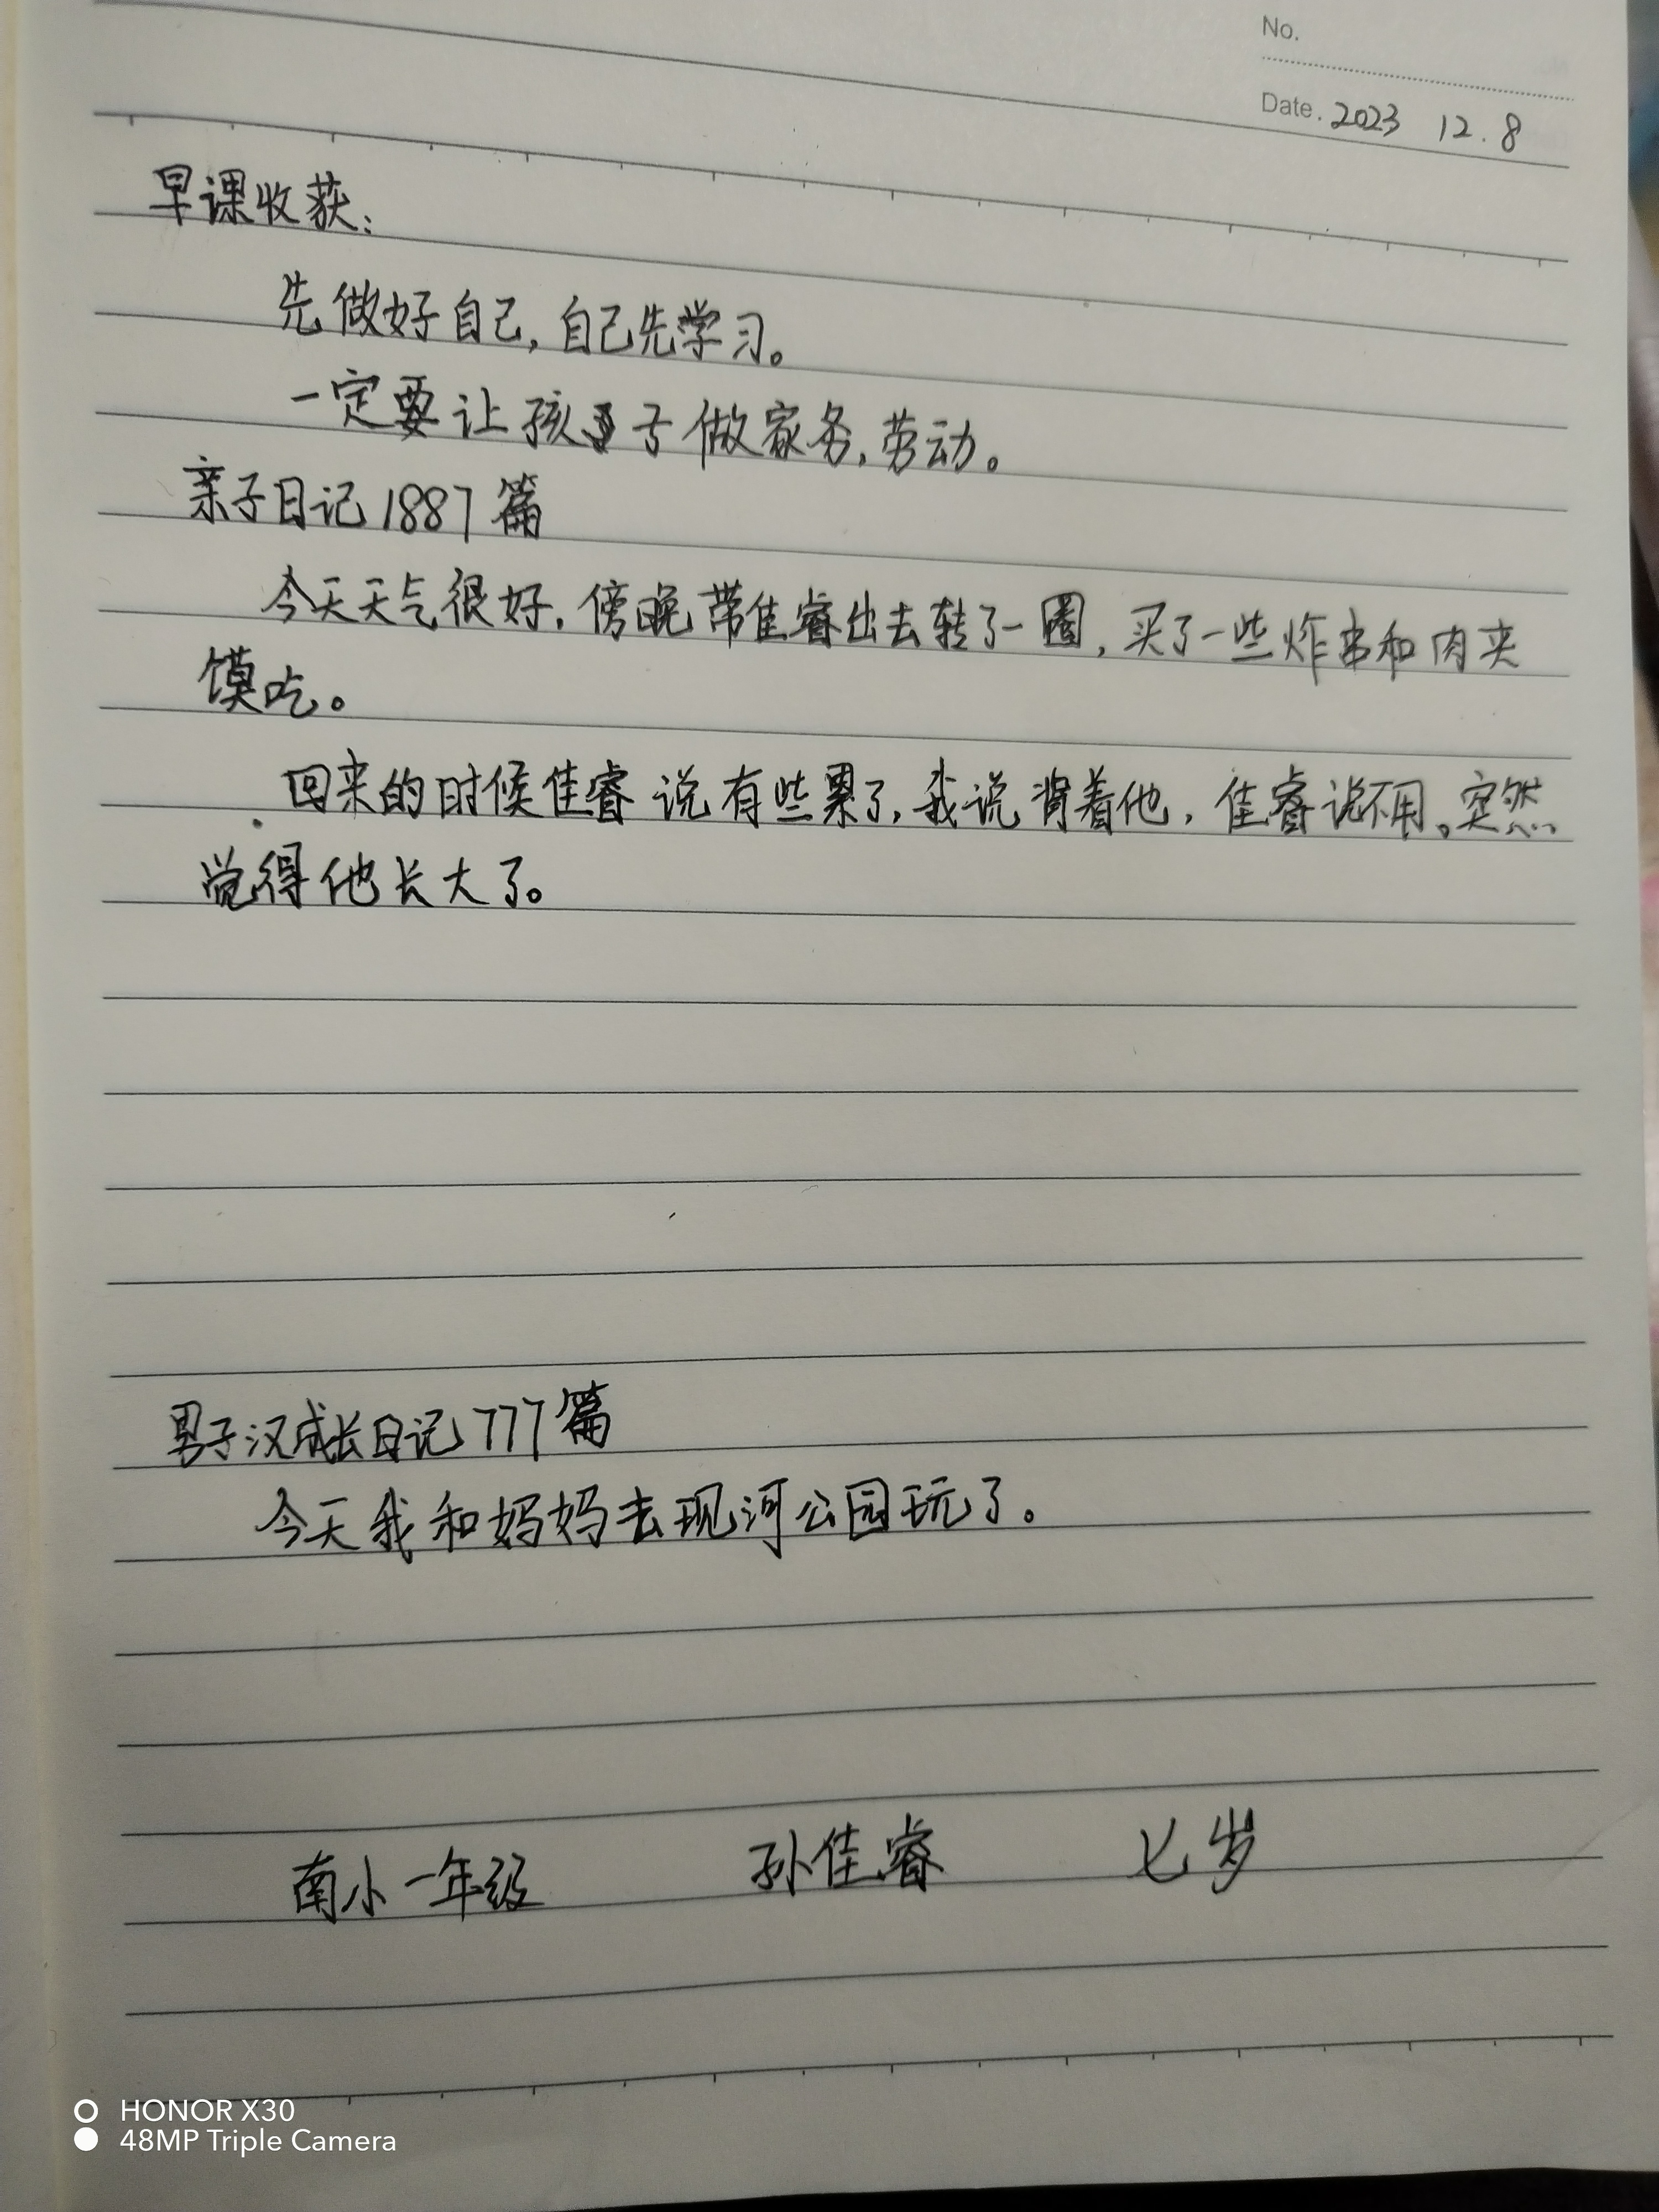 No.
Date. 2023 12.8
早课收获:
先做好自己,自己先学习。
一定要让孩子做家务,劳动。
亲子日记1887篇
今天天气很好,傍晚带佳睿出去转了一圈,买了一些炸串和肉夹
馍吃。
回来的时候佳睿说有些累了,我说背着他,佳睿说不用。突然
觉得他长大了。
男子汉成长日记777篇
今天我和妈妈去现河公园玩了。
南小一年级 孙佳睿 七岁
HONOR X30
48MP Triple Camera